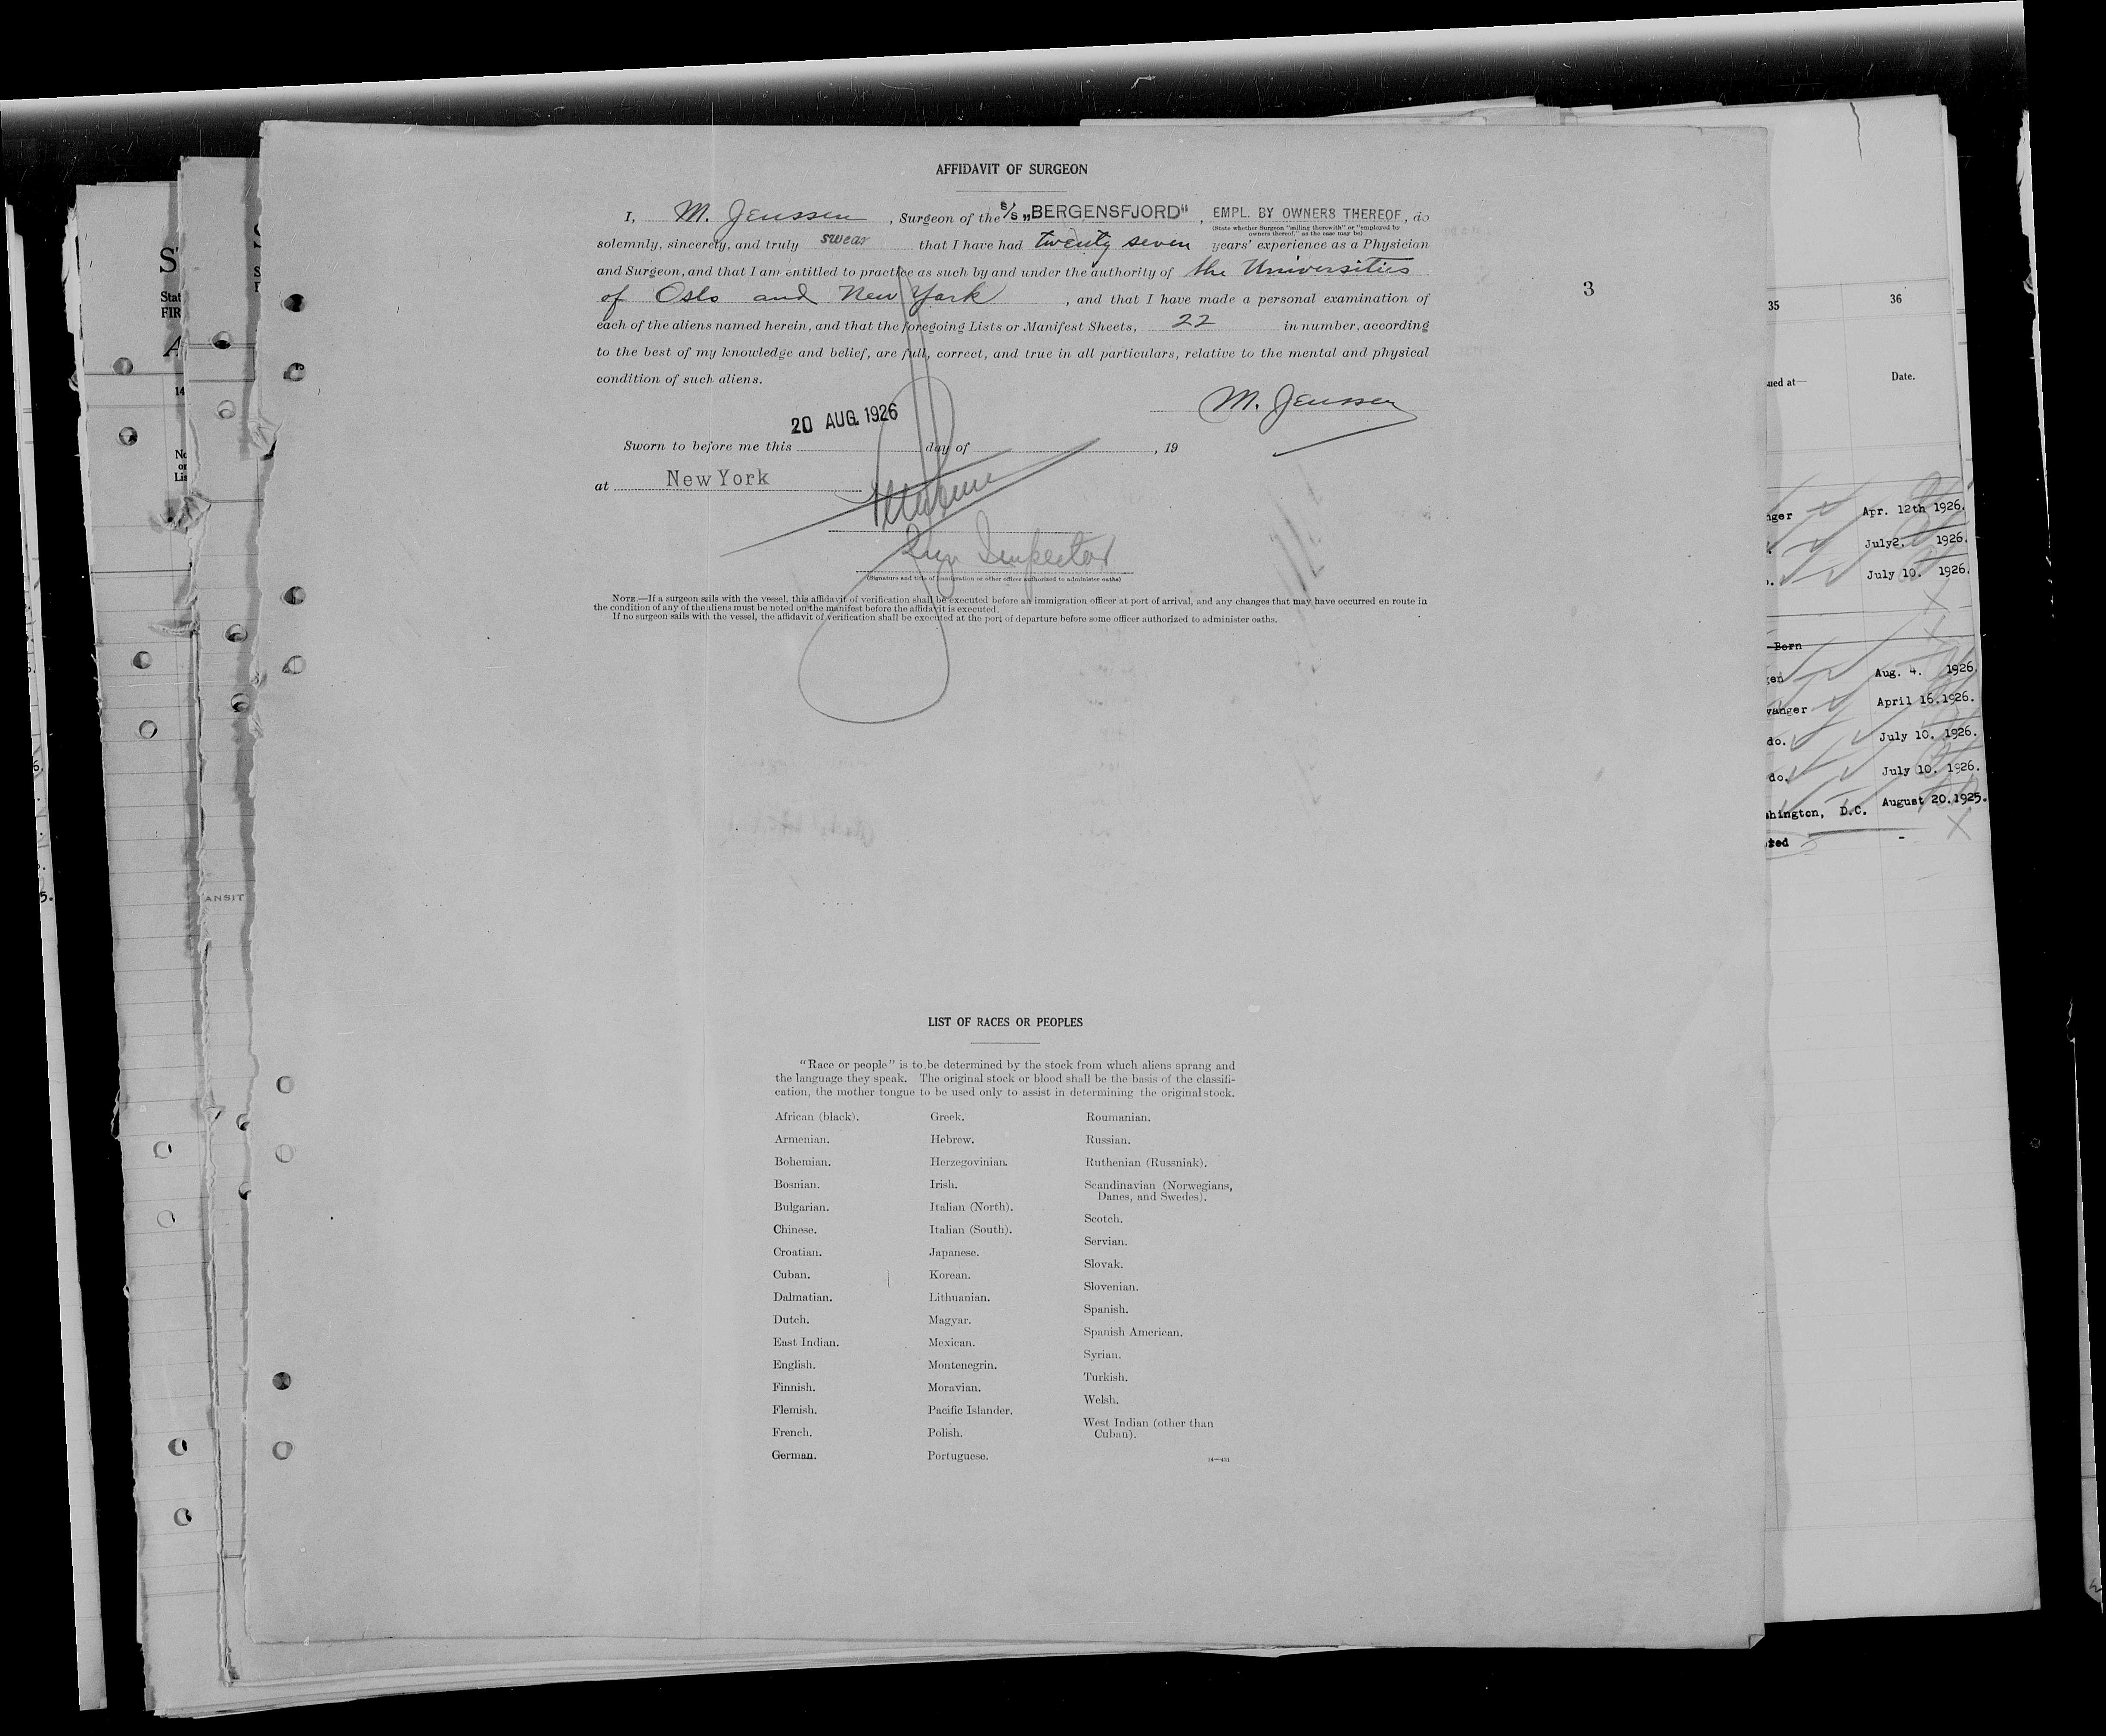 AFFIDAVIT OF SURGEON
I, M. Jenssen, Surgeon of the S/S „BERGENSFJORD“, EMPL. BY OWNERS THEREOF, do
(State whether Surgeon "sailing therewith" or "employed by
owners thereof," as the case may be)
solemnly, sincerely, and truly swear that I have had twenty seven years' experience as a Physician
and Surgeon, and that I am entitled to practice as such by and under the authority of the Universities
of Oslo and New York, and that I have made a personal examination of
each of the aliens named herein, and that the foregoing Lists or Manifest Sheets, 22 in number, according
to the best of my knowledge and belief, are full, correct, and true in all particulars, relative to the mental and physical
condition of such aliens.
M. Jenssen
20 AUG. 1926
Sworn to before me this day of , 19
at New York
Inspector
(Signature and title of immigration or other officer authorized to administer oaths)
NOTE.—If a surgeon sails with the vessel, this affidavit of verification shall be executed before an immigration officer at port of arrival, and any changes that may have occurred en route in
the condition of any of the aliens must be noted on the manifest before the affidavit is executed.
If no surgeon sails with the vessel, the affidavit of verification shall be executed at the port of departure before some officer authorized to administer oaths.
3
LIST OF RACES OR PEOPLES
"Race or people" is to be determined by the stock from which aliens sprang and
the language they speak. The original stock or blood shall be the basis of the classifi-
cation, the mother tongue to be used only to assist in determining the original stock.
African (black).
Armenian.
Bohemian.
Bosnian.
Bulgarian.
Chinese.
Croatian.
Cuban.
Dalmatian.
Dutch.
East Indian.
English.
Finnish.
Flemish.
French.
German.
Greek.
Hebrew.
Herzegovinian.
Irish.
Italian (North).
Italian (South).
Japanese.
Korean.
Lithuanian.
Magyar.
Mexican.
Montenegrin.
Moravian.
Pacific Islander.
Polish.
Portuguese.
Roumanian.
Russian.
Ruthenian (Russniak).
Scandinavian (Norwegians,
Danes, and Swedes).
Scotch.
Servian.
Slovak.
Slovenian.
Spanish.
Spanish American.
Syrian.
Turkish.
Welsh.
West Indian (other than
Cuban).
35 36
ued at— Date.
nger Apr. 12th 1926.
July 2. 1926.
July 10. 1926.
Born
gen Aug. 4. 1926.
vanger April 16.1926.
do. July 10. 1926.
do. July 10. 1926.
hington, D.C. August 20.1925.
14
ANSIT